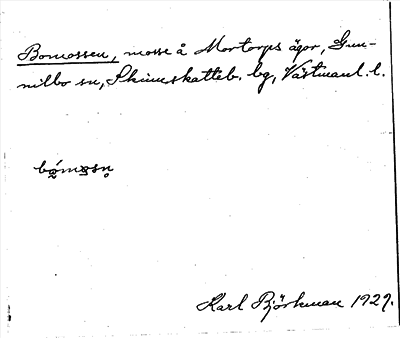 Bomossen, mosse å Mortorps ägor, Gun-
nilbo sn, Skinnskatteb. bg, Västmanl. l.
bǫ́mǫsn̥
Karl Björkman 1929.